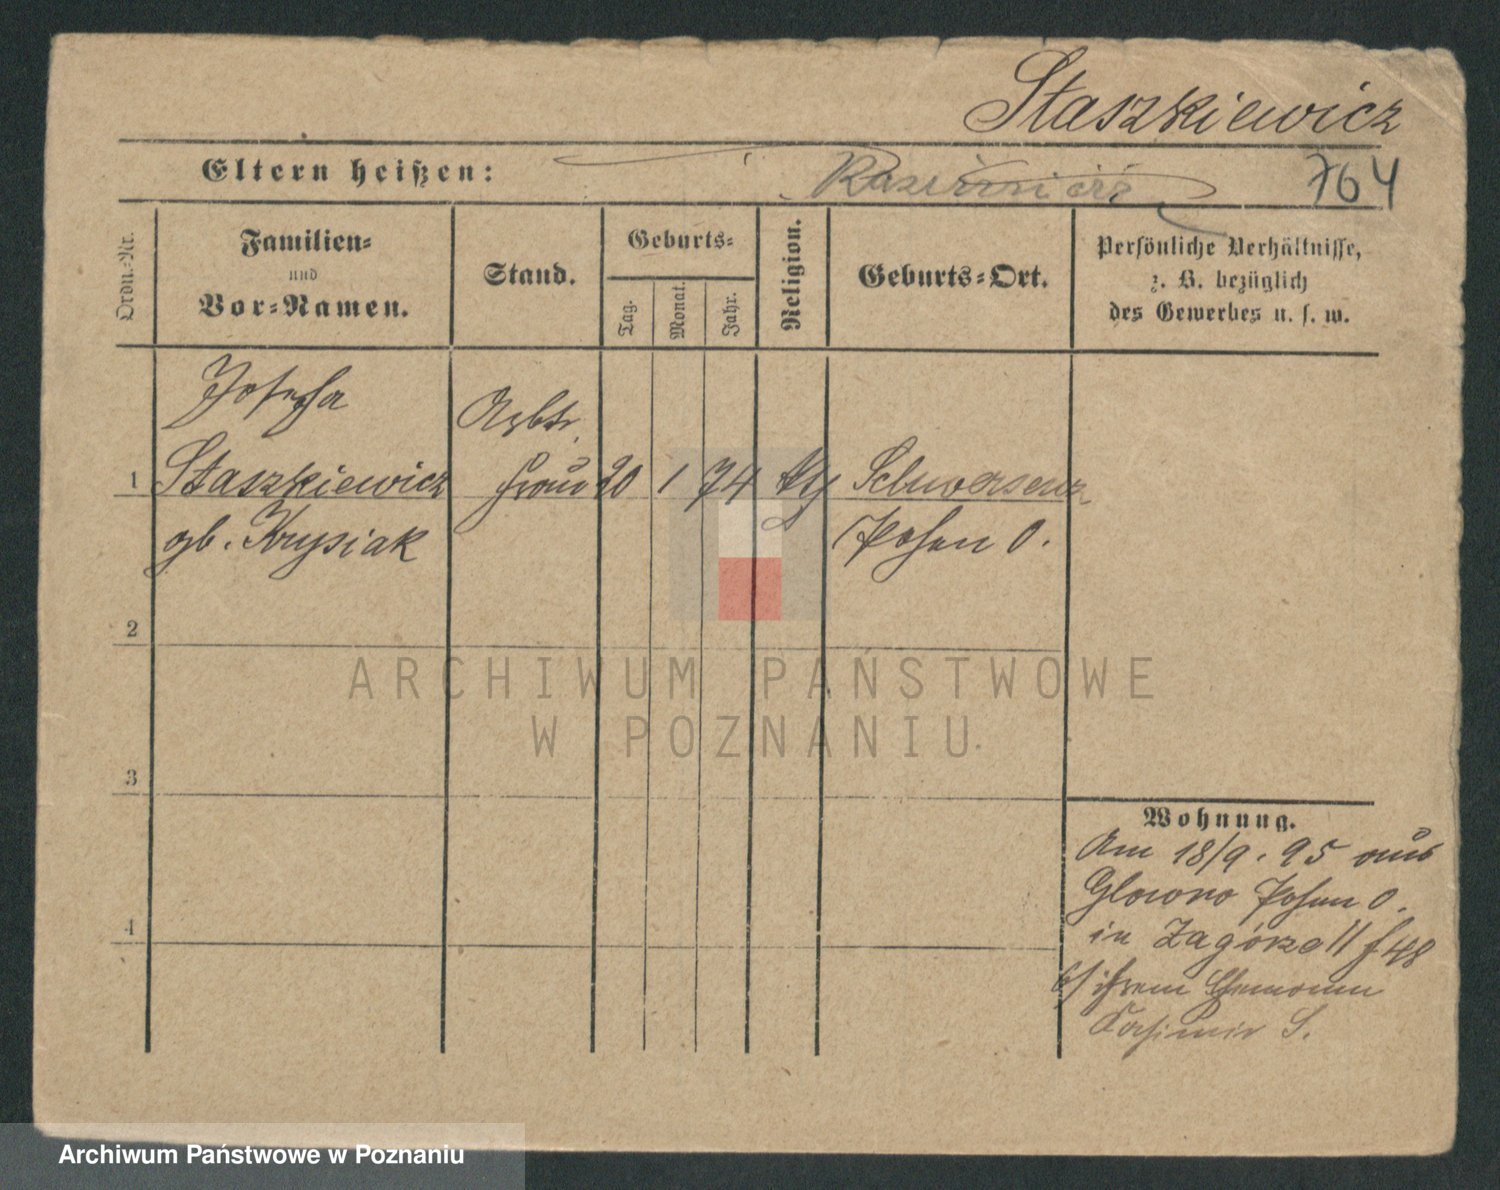 Staszkiewicz
Eltern heißen:
764
Ordn.-Nr.
Familien-
und
Vor-Namen.
Stand.
Geburts-
Tag.
Monat.
Jahr.
Religion.
Geburts-Ort.
Persönliche Verhältnisse,
z. B. bezüglich
des Gewerbes u. s. w.
Josefa
Arbtr.
1 Staszkiewicz frau 20 1 74 kth Schwersenz
gb. Krysiak Posen O.
2
3
4
ARCHIWUM PAŃSTWOWE
W POZNANIU
Wohnung.
Am 18/9. 95 aus
Glowno Posen O.
in Zagórze 11 f 48
b/ ihrem Ehemann
Kasimir S.
Archiwum Państwowe w Poznaniu